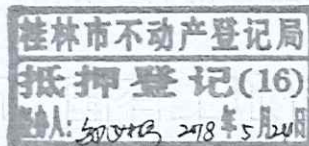 桂林市不动产登记局
抵押登记(16)
经办人: 2018年5月24日